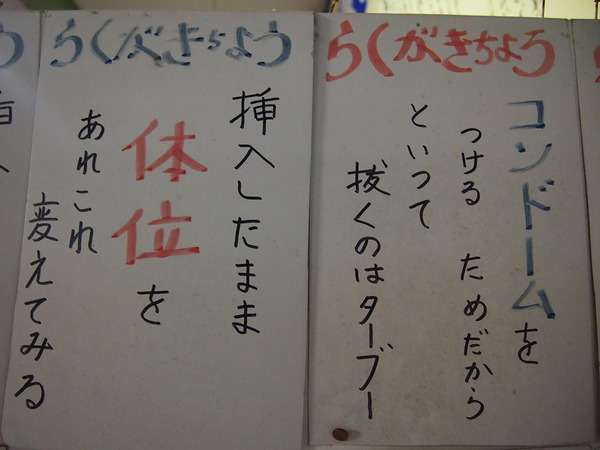 らくがきちょう
コンドームを
つける ためだから
といって
抜くのはターブー
らくがきちょう
挿入したまま
体位を
あれこれ
変えてみる